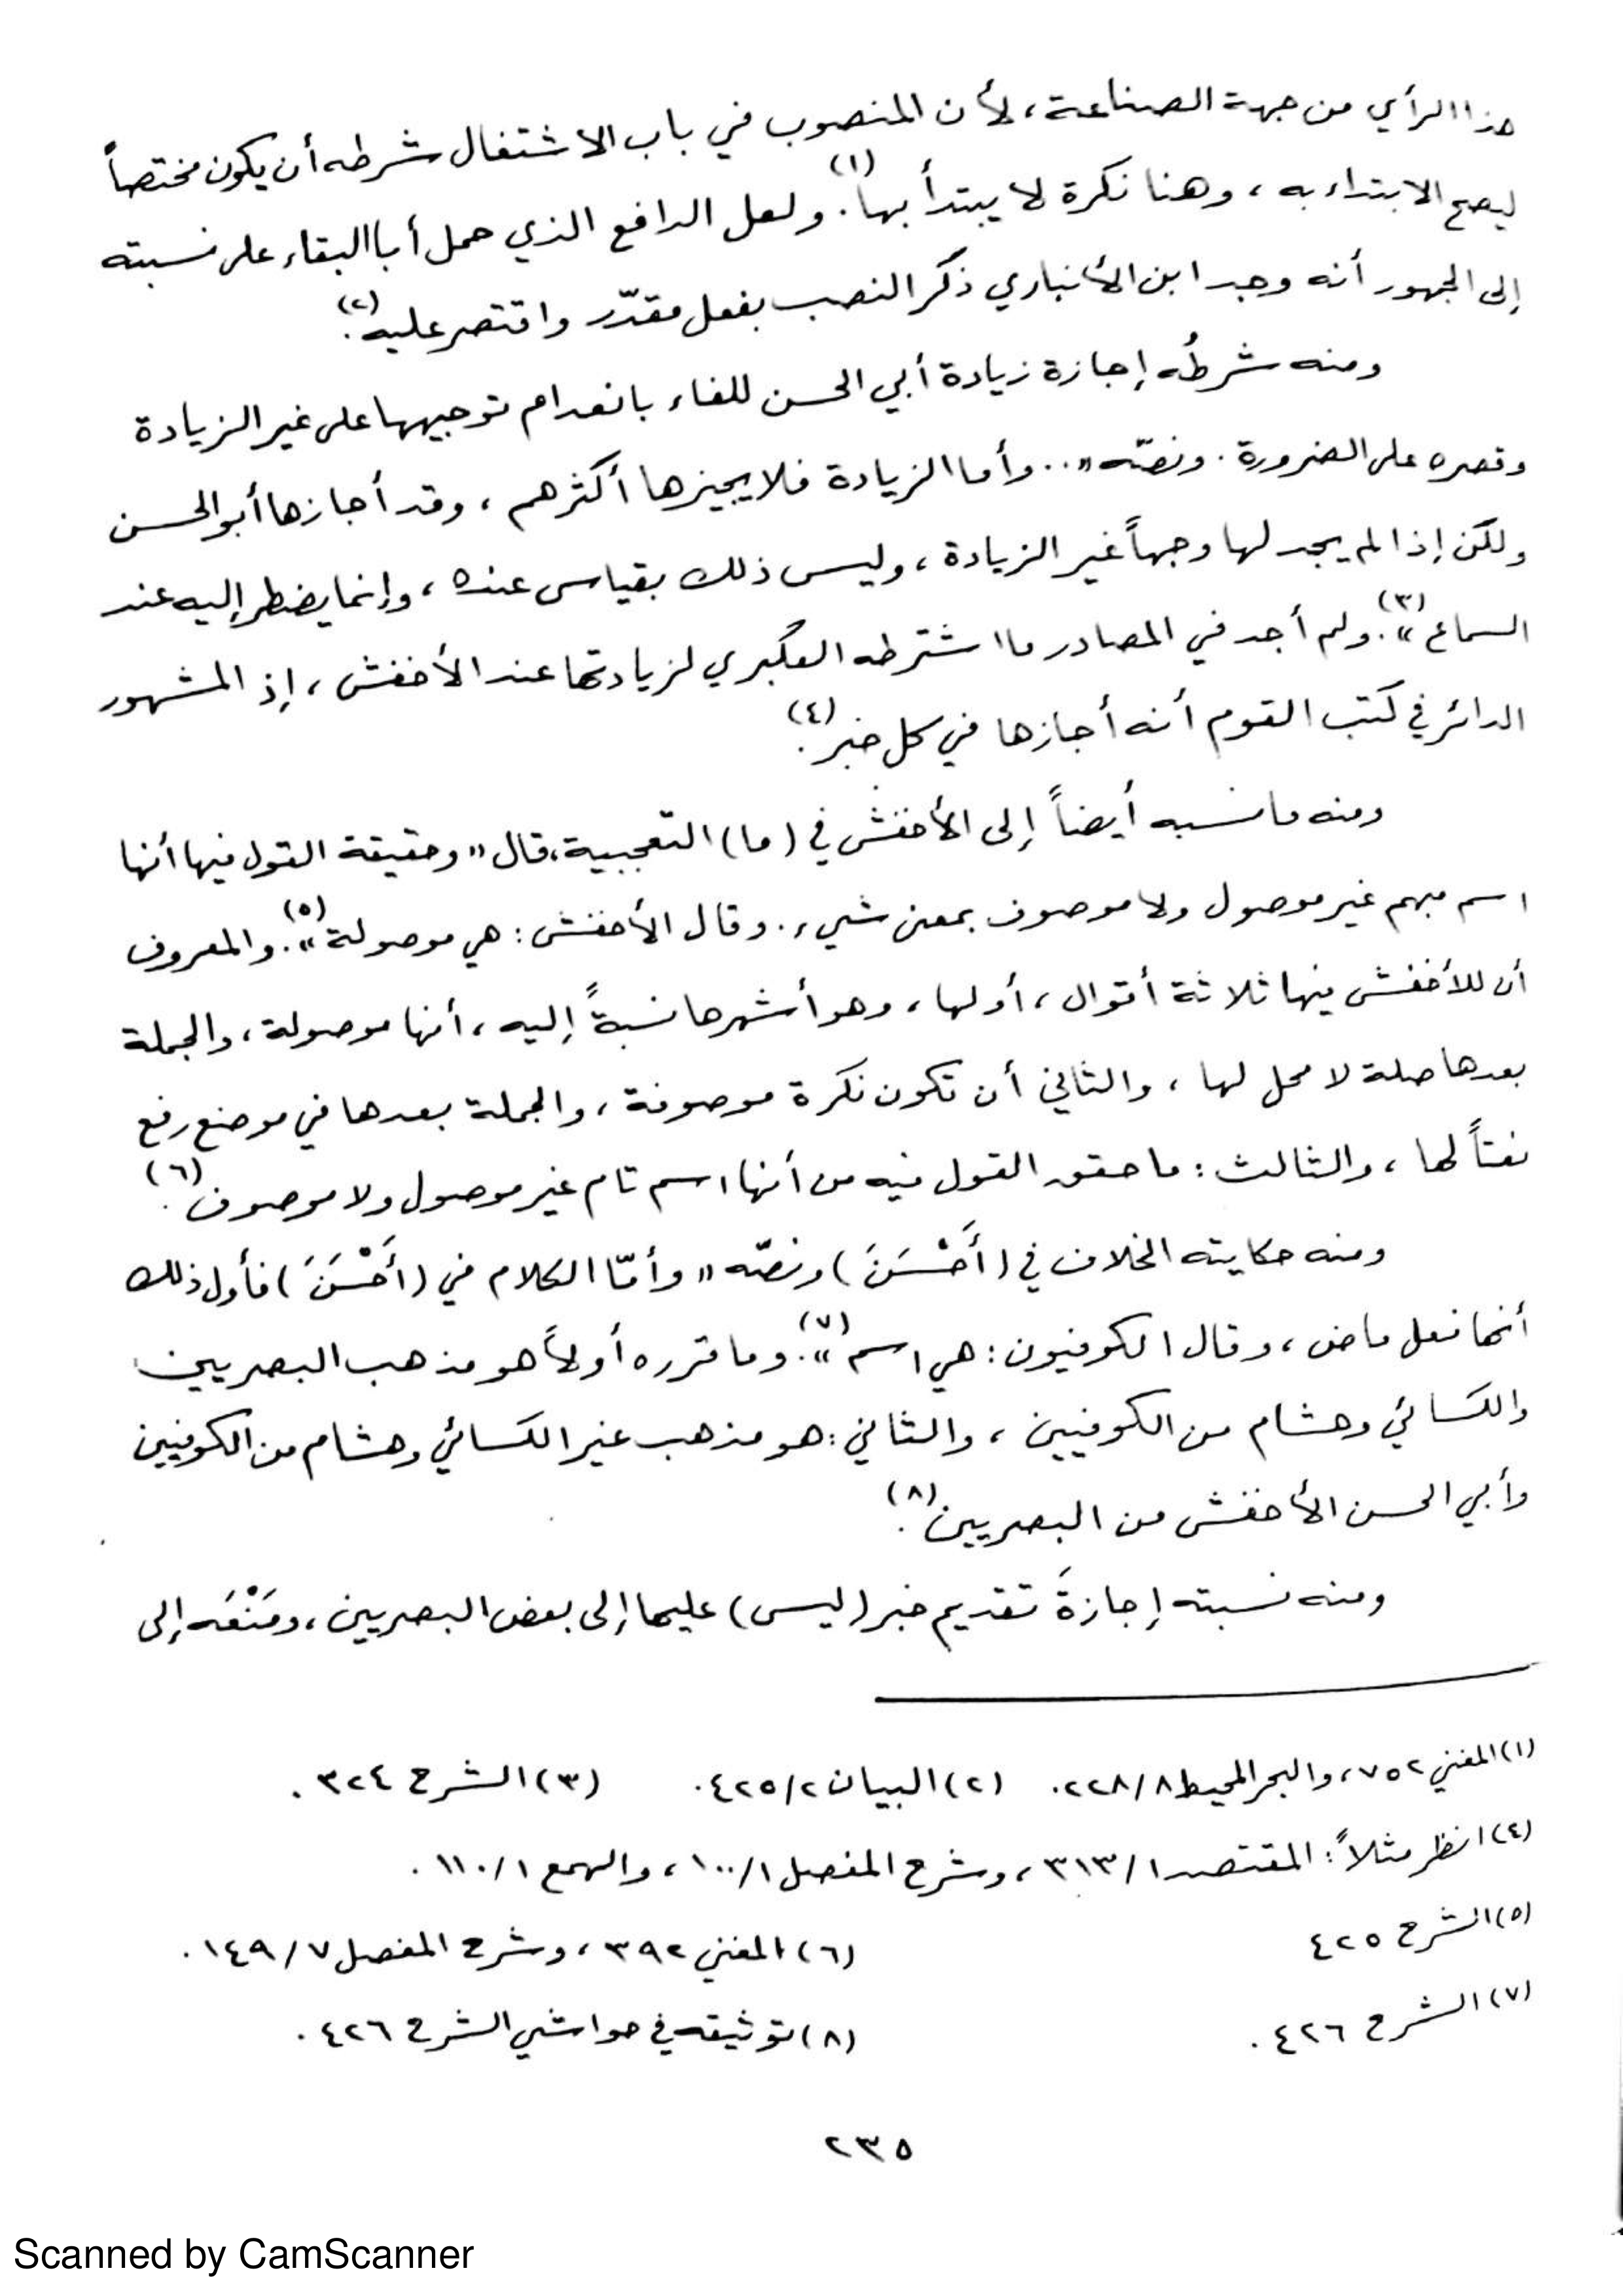 هذا الرأي من جهة الصناعة، لأن المنصوب في باب الاشتغال شرطه أن يكون مختصاً
ليصح الابتداء به، وهنا نكرة لا يبتدأ بها(١). ولعل الدافع الذي حمل أبا البقاء على نسبته
إلى الجمهور أنه وجد ابن الأنباري ذكر النصب بفعل مقدّر واقتصر عليه(٢).
ومنه شرطُه إجازة زيادة أبي الحسن للفاء بانعدام توجيهها على غير الزيادة
وقصره على الضرورة. ونصّه «.. وأما الزيادة فلا يجيزها أكثرهم، وقد أجازها أبو الحسن
ولكن إذا لم يجد لها وجهاً غير الزيادة، وليس ذلك بقياس عنده، وإنما يضطر إليه عند
السماع»(٣). ولم أجد في المصادر ما اشترطه العكبري لزيادتها عند الأخفش، إذ المشهور
الدائر في كتب القوم أنه أجازها في كل خبر(٤).
ومنه ما نسبه أيضاً إلى الأخفش في (ما) التعجبية، قال «وحقيقة القول فيها أنها
اسم مبهم غير موصول ولا موصوف بمعنى شيء. وقال الأخفش: هي موصولة»(٥). والمعروف
أن للأخفش فيها ثلاثة أقوال، أولها، وهو أشهرها نسبةً إليه، أنها موصولة، والجملة
بعدها صلة لا محل لها، والثاني أن تكون نكرة موصوفة، والجملة بعدها في موضع رفع
نعتاً لها، والثالث: ما حقق القول فيه من أنها اسم تام غير موصول ولا موصوف(٦).
ومنه حكايته الخلاف في (أَحْسَنَ) ونصّه «وأمّا الكلام في (أَحْسَنَ) فأول ذلك
أنها فعل ماض، وقال الكوفيون: هي اسم»(٧). وما قرره أولاً هو مذهب البصريين
والكسائي وهشام من الكوفيين، والثاني: هو مذهب غير الكسائي وهشام من الكوفيين
وأبي الحسن الأخفش من البصريين(٨).
ومنه نسبته إجازةَ تقديم خبر (ليس) عليها إلى بعض البصريين، ومَنْعَه إلى
(١) المغني ٧٥٢، والبحر المحيط ٨/٢٢٨. (٢) البيان ٢/٤٢٥. (٣) الشرح ٣٢٤.
(٤) انظر مثلاً: المقتصد ١/٣١٣، وشرح المفصل ١/١٠٠، والهمع ١/١١٠.
(٥) الشرح ٤٢٥ (٦) المغني ٣٩٢، وشرح المفصل ٧/١٤٩.
(٧) الشرح ٤٢٦. (٨) توثيقه في حواشي الشرح ٤٢٦.
٢٣٥
Scanned by CamScanner